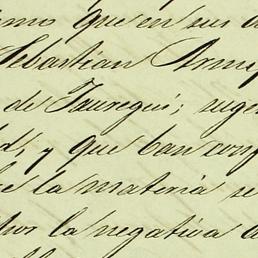 como que en sus
Sebastian Arme
de Jauregui; suge
d, y que han conf
la materia se
por la negativa d